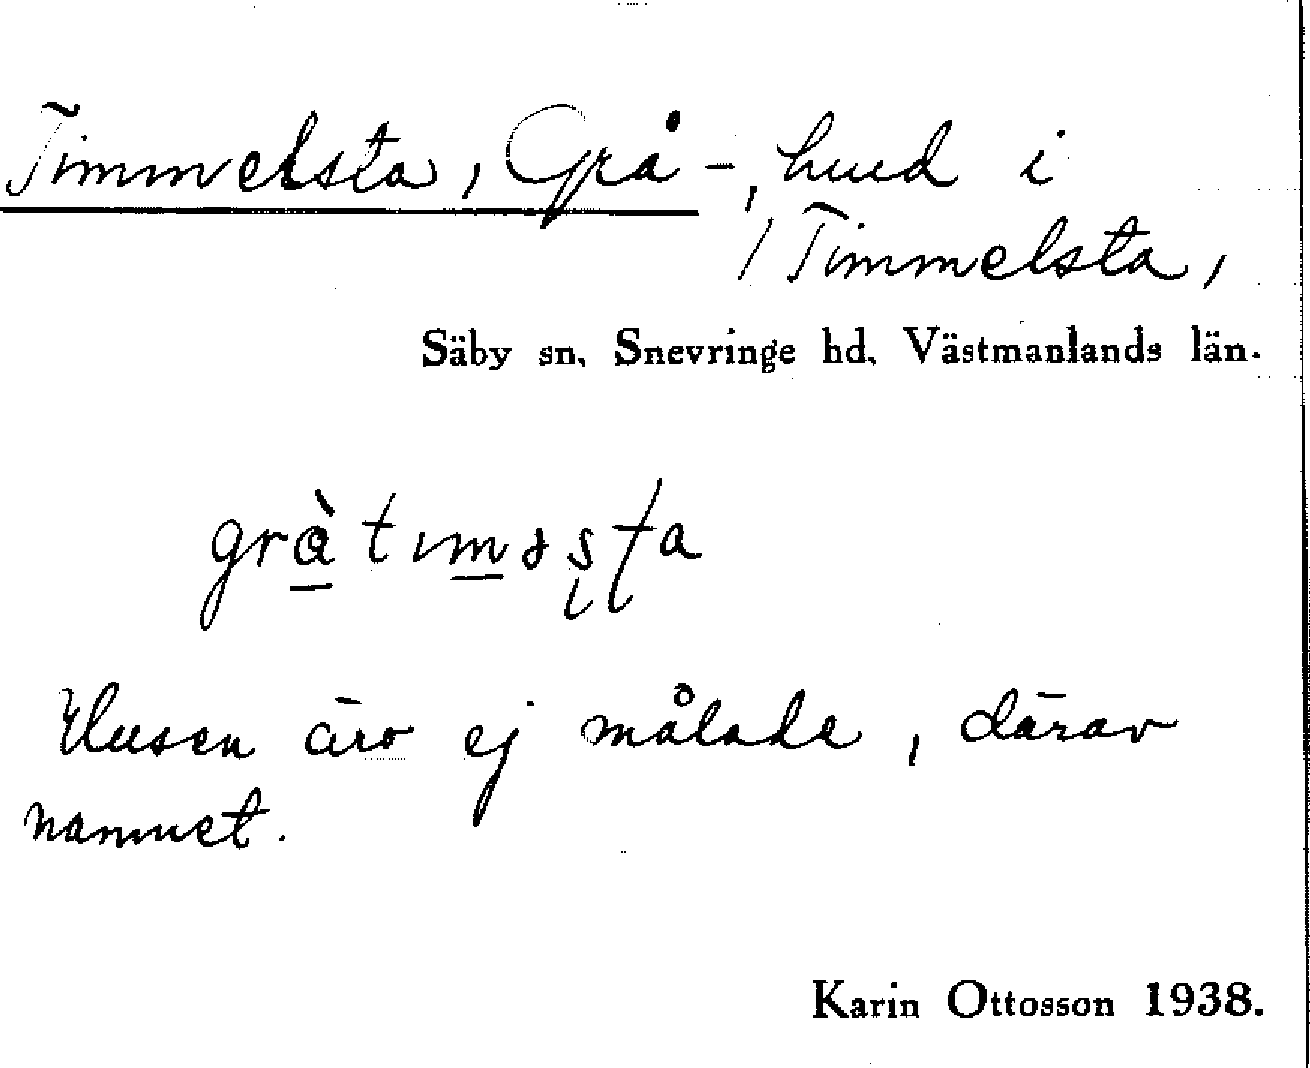 Timmelsta, Grå-, hmd i
/ Timmelsta,
Säby sn, Snevringe hd, Västmanlands län.
gràtıməsta
Husen äro ej målade, därav
namnet.
Karin Ottosson 1938.